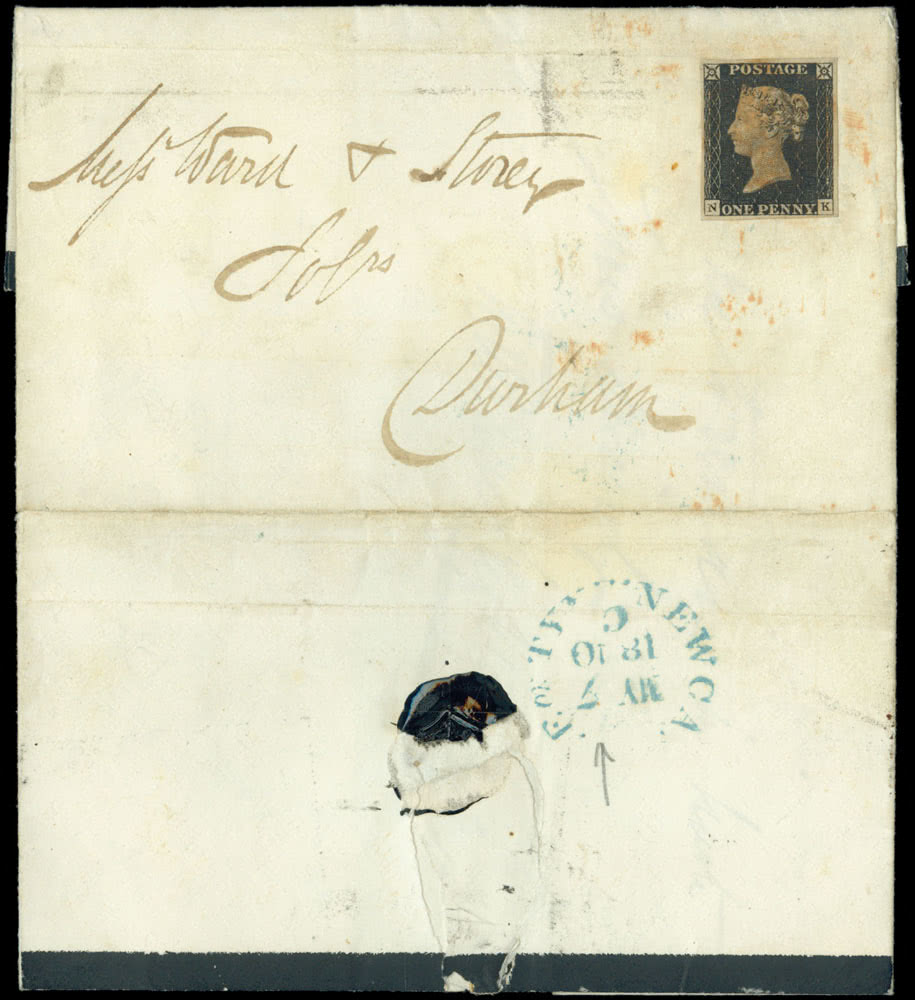 POSTAGE
ONE PENNY.
N K
Messrs Ward & Storey
Solrs
Durham
NEWCA
C
1840
MY 7